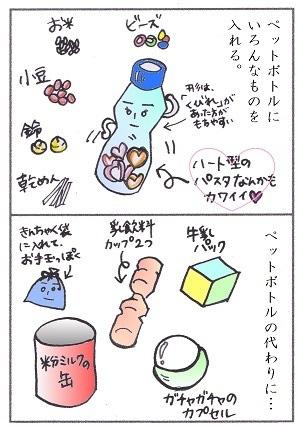 ペットボトルに
いろんなものを
入れる。
お米
ビーズ
小豆
鈴
乾めん
形は、
「くびれ」が
あった方が
もちやすい
ハート型の
パスタなんかも
カワイイ♥
ペットボトルの代わりに…
きんちゃく袋
に入れて、
お手玉っぽく
乳飲料
カップ2つ
牛乳
パック
粉ミルクの
缶
ガチャガチャの
カプセル